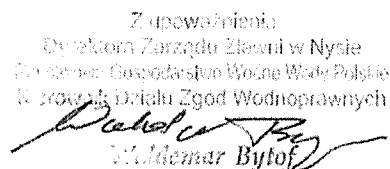 Z upoważnienia
Dyrektora Zarządu Zlewni w Nysie
Gospodarstwo Wodne Wody Polskie
Kierownik Działu Zgód Wodnoprawnych
Waldemar Bytof